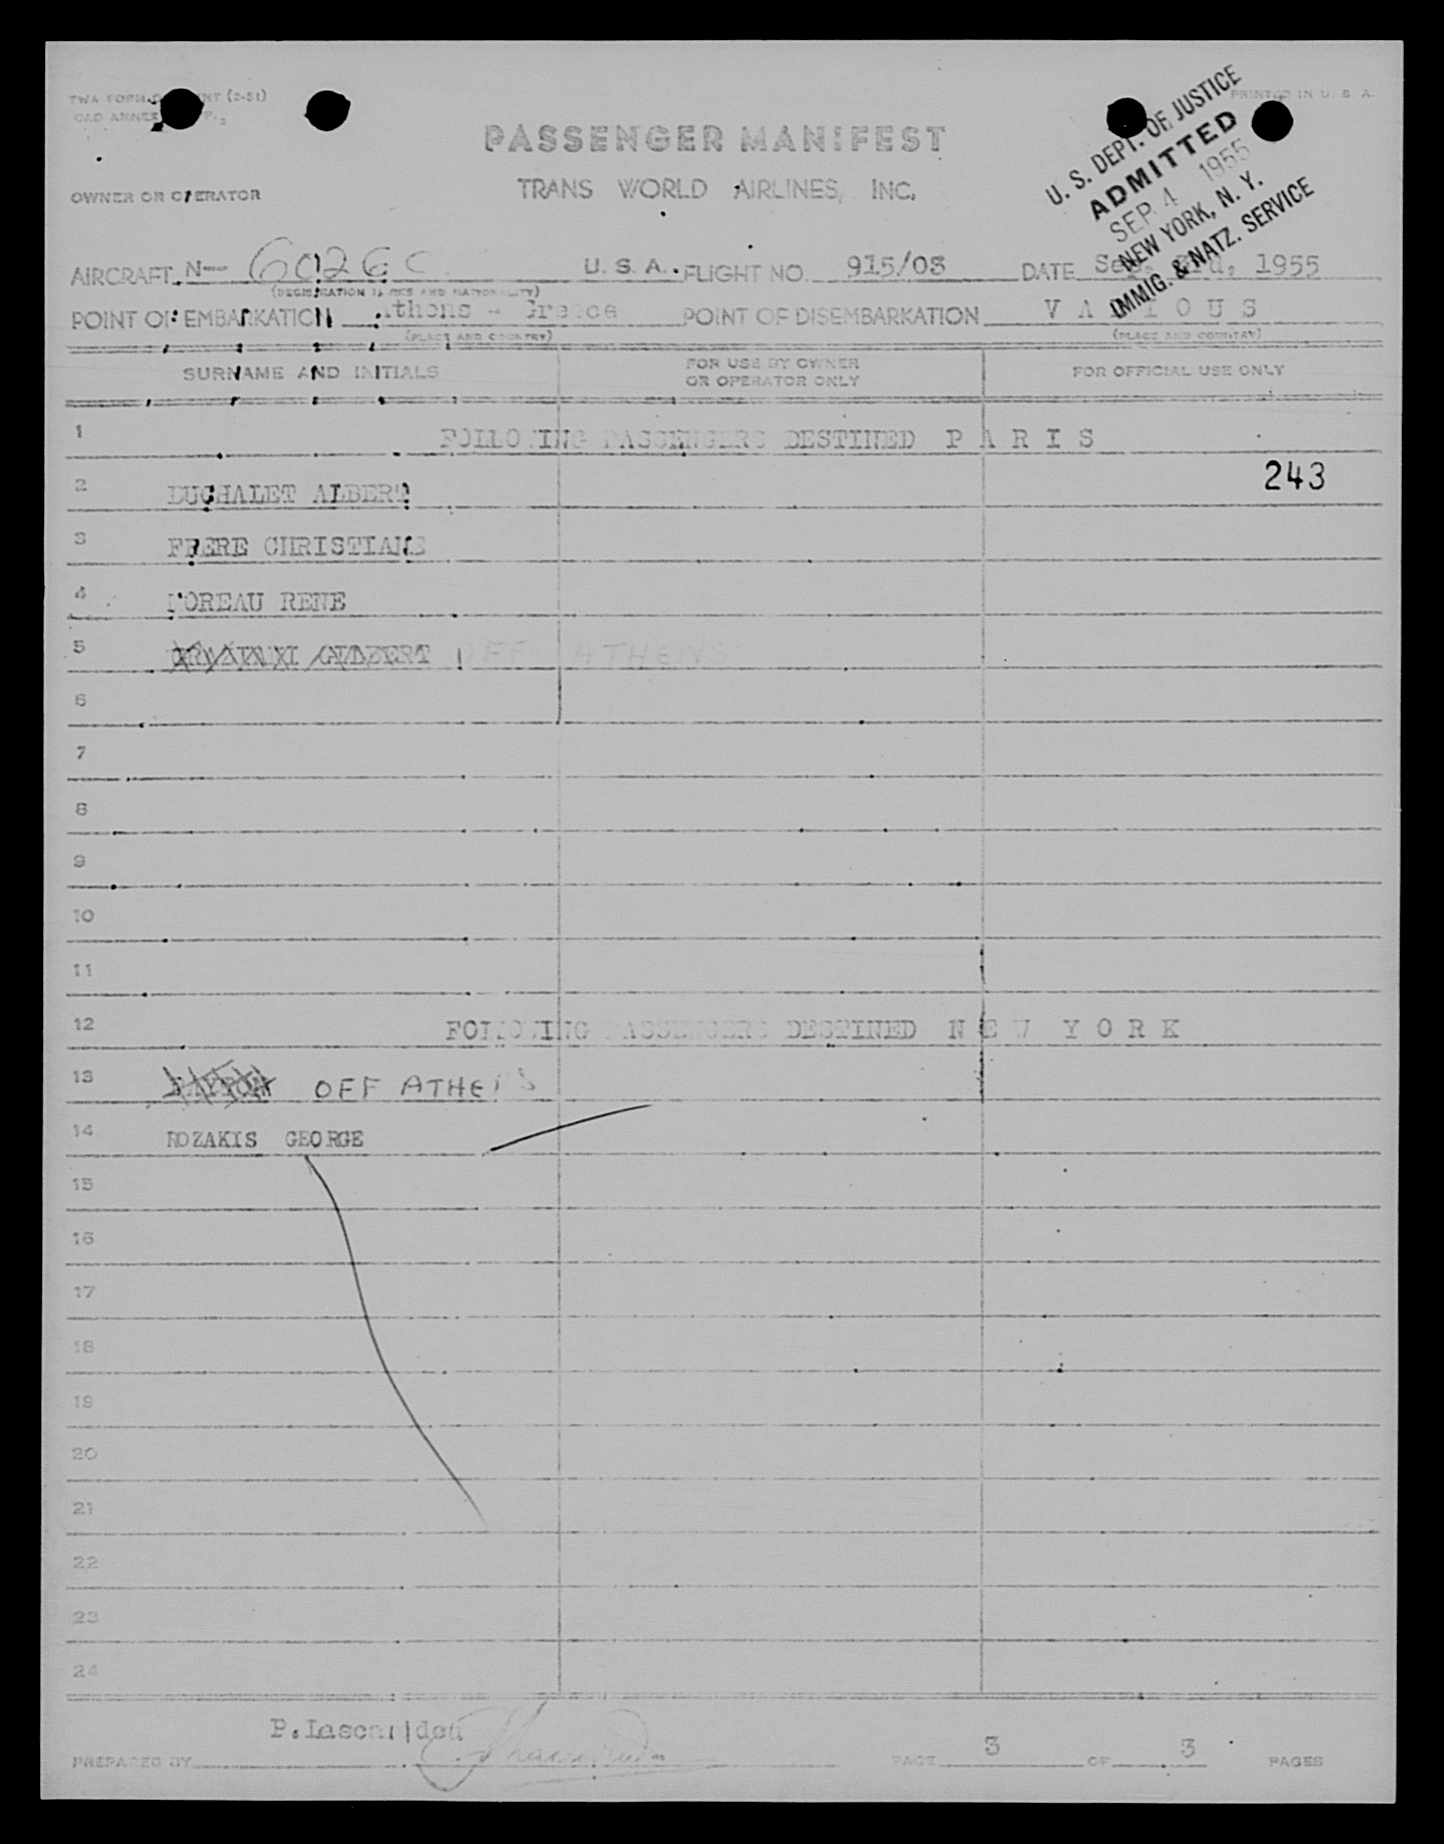 TWA FORM INT (2-51)
PRINTED IN U. S. A.
PASSENGER MANIFEST
TRANS WORLD AIRLINES, INC.
OWNER OR OPERATOR
U. S. DEPT. OF JUSTICE
ADMITTED
SEP 4 1955
NEW YORK, N. Y.
IMMIG. & NATZ. SERVICE
AIRCRAFT N— 6026 C U. S. A. FLIGHT NO. 915/03 DATE Sep. 3rd, 1955
(REGISTRATION MARKS AND NATIONALITY)
POINT OF EMBARKATION Athens - Greece POINT OF DISEMBARKATION VARIOUS
(PLACE AND COUNTRY) (PLACE AND COUNTRY)
SURNAME AND INITIALS FOR USE BY OWNER OR OPERATOR ONLY FOR OFFICIAL USE ONLY
1 FOLLOWING PASSENGERS DESTINED P A R I S
243
2 DUCHALET ALBERT
3 FRERE CHRISTIANE
4 MOREAU RENE
5 OFF ATHENS
6
7
8
9
10
11
12 FOLLOWING PASSENGERS DESTINED N E W Y O R K
13 OFF ATHENS
14 KOZAKIS GEORGE
15
16
17
18
19
20
21
22
23
24
PREPARED BY P. Lascarides PAGE 3 OF 3 PAGES